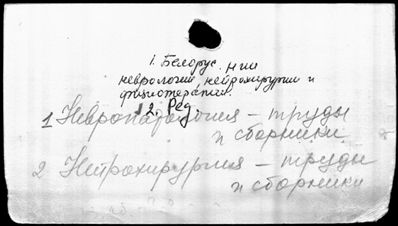 1. Белорус. НИИ
неврологии, нейрохирургии и
физиотерапии.
2. Ред.
1 Невропатология – труды
и сборники
2 Нейрохирургия – труды
и сборники